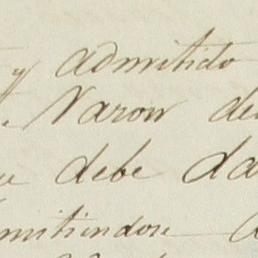 y admitido
Naron de
debe da
mitiendose